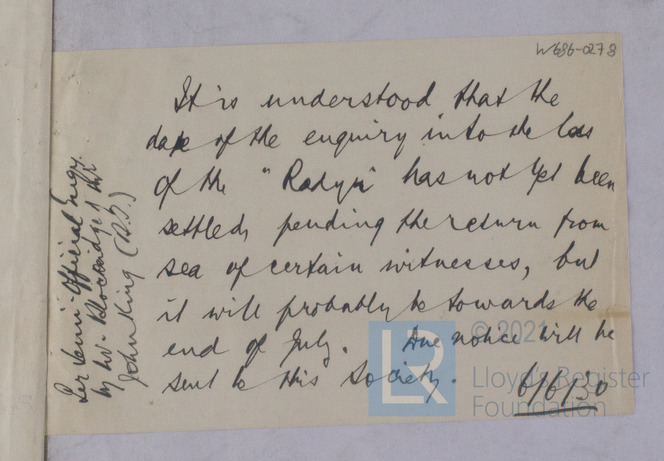 W686-0278
It is understood that the
date of the enquiry into the loss
of the "Radyr" has not yet been
settled, pending the return from
sea of certain witnesses, but
it will probably be towards the
end of July. Due notice will be
sent to this Society.
6/6/30
Per semi-official enqy.
by Mr. Blocksidge of Mr.
John King (S.S.)
© 2021
LR
Lloyd's Register
Foundation